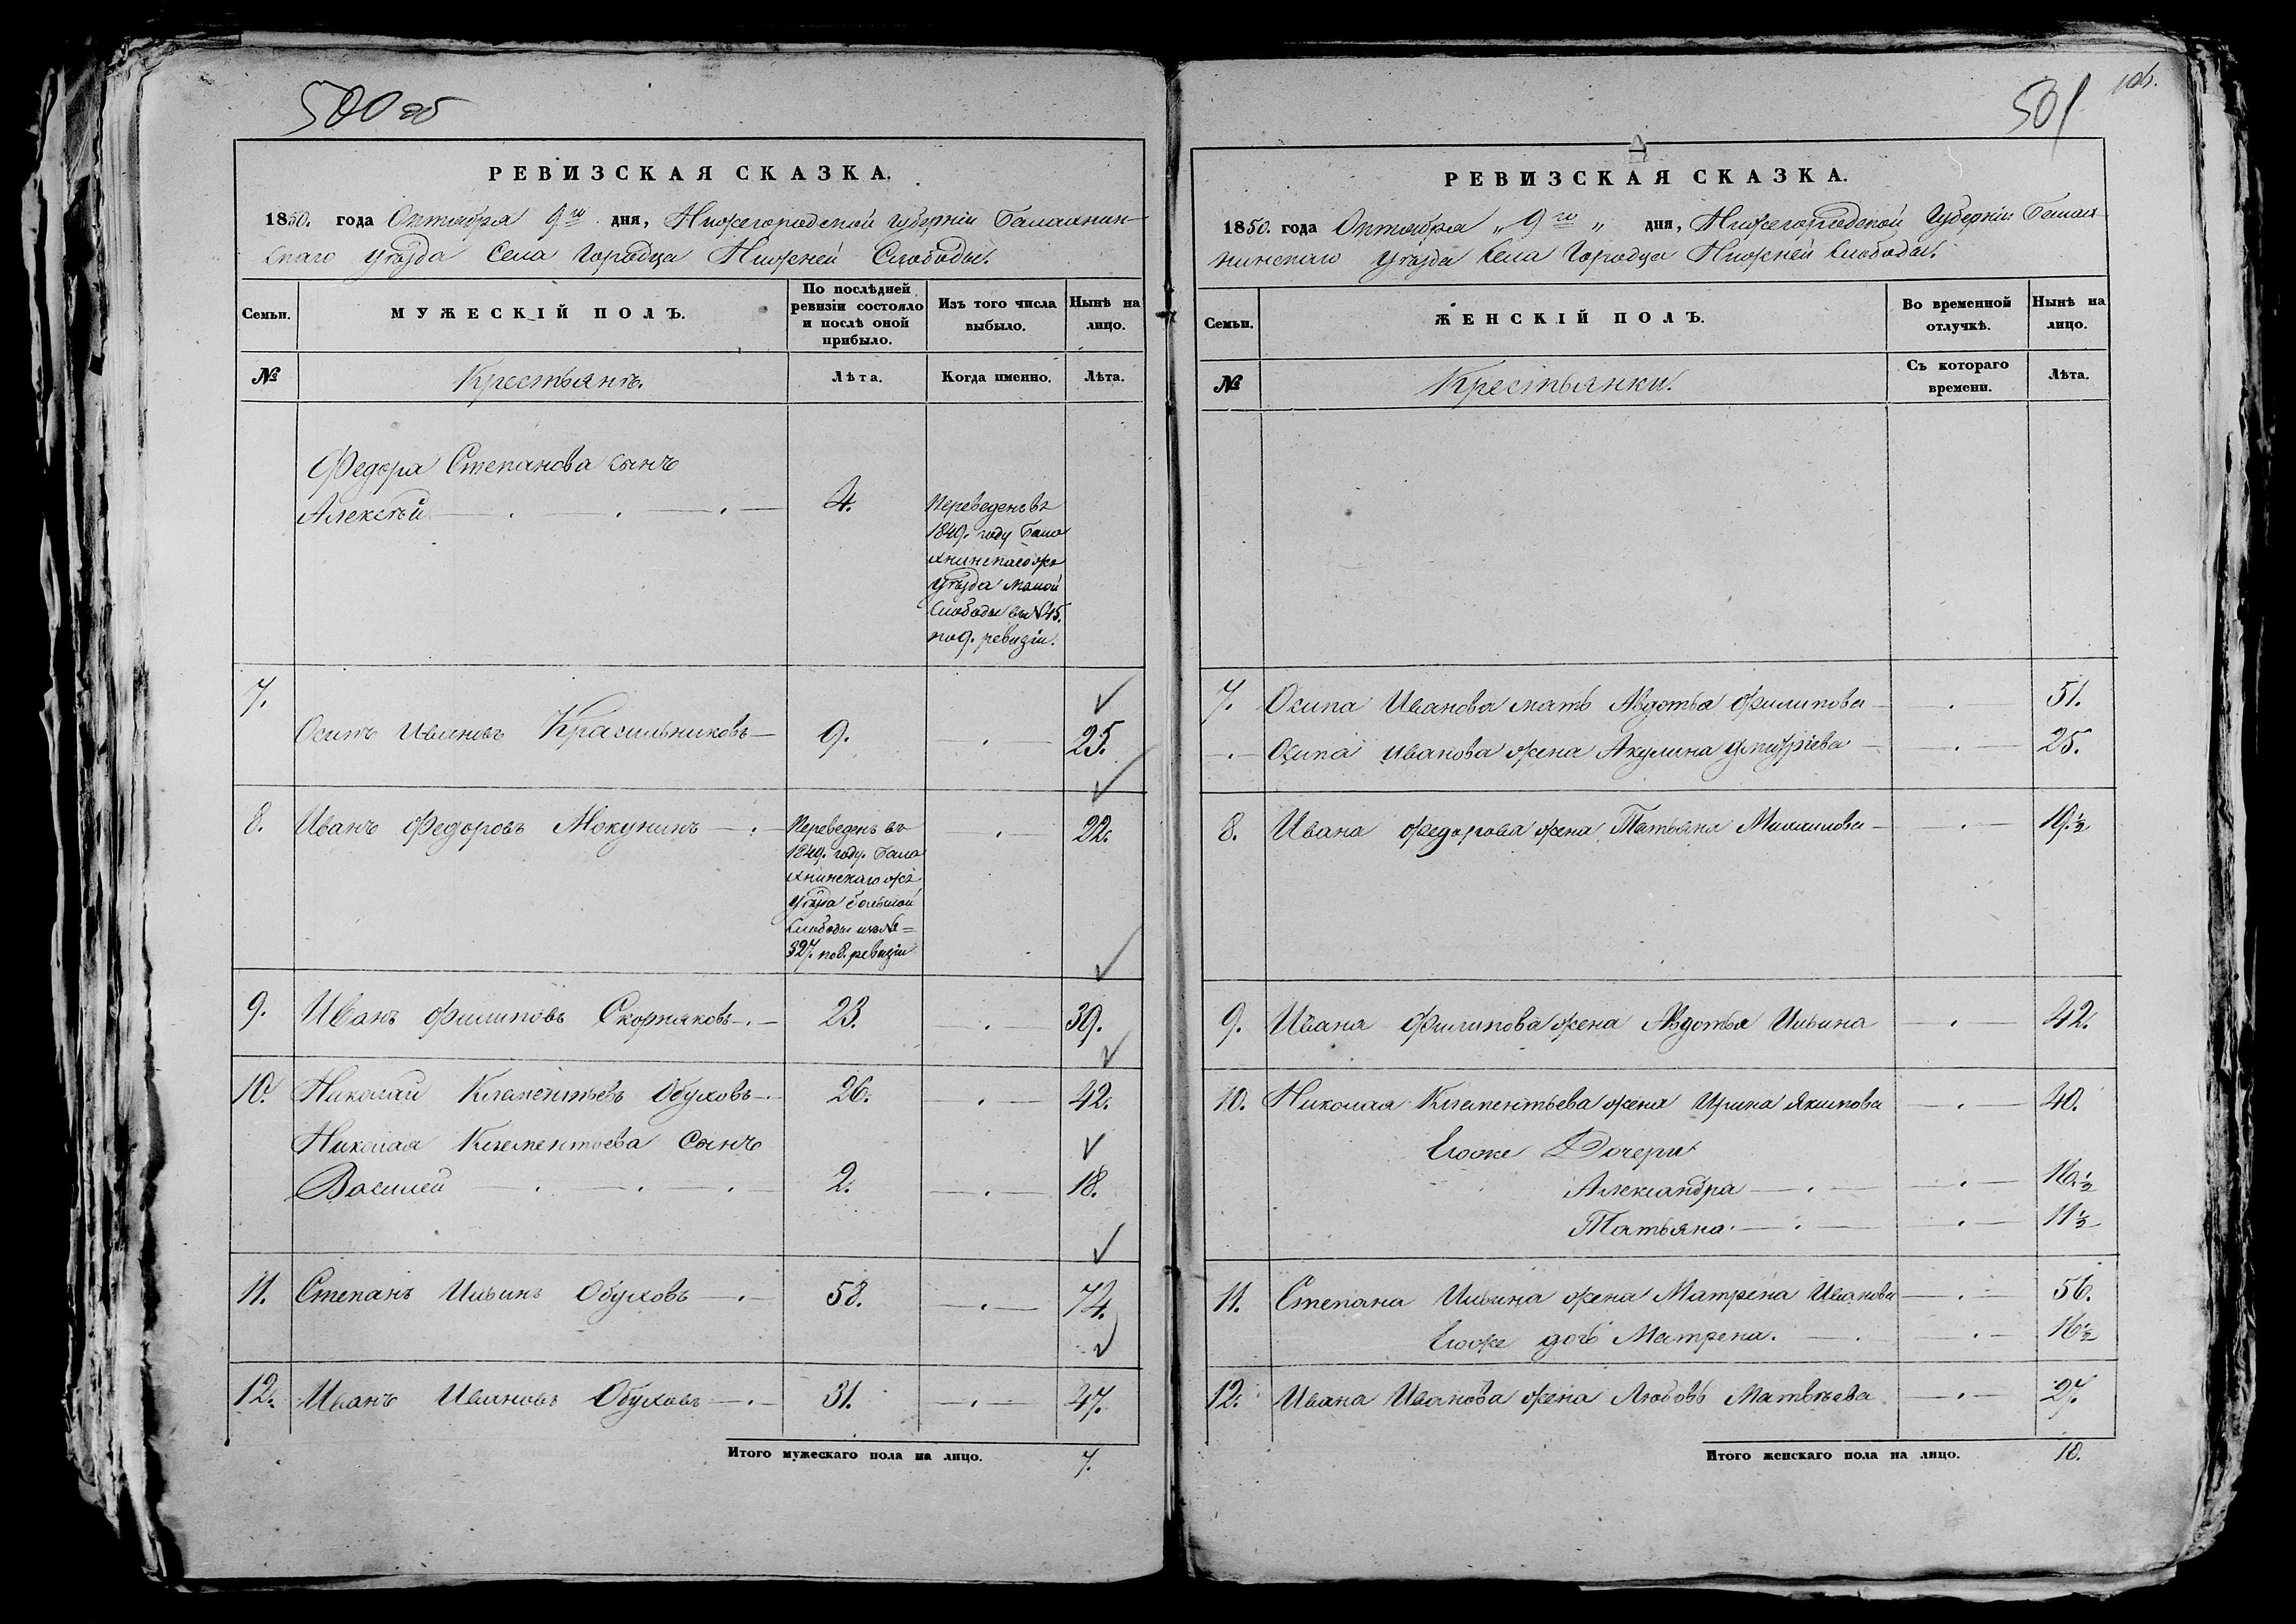 500 об
РЕВИЗСКАЯ СКАЗКА.
1850. года Октября 9го дня, Нижегородской губерніи Балахнин-
скаго уѣзда Села Городца Нижней Слободы.
Семьи.
МУЖЕСКІЙ ПОЛЪ.
По послѣдней ревизіи состояло и послѣ оной прибыло.
Изъ того числа выбыло.
Нынѣ на лицо.
№
Крестьянъ.
Лѣта.
Когда именно.
Лѣта.
Федора Степанова сынъ
Алексѣй 4.
Переведенъ въ
1849. году Бала
хнинскаго же
уѣзда малой
Слободы въ №45.
по 9. ревизіи.
7.
Осипъ Ивановъ Красильниковъ 9. 25.
8. Иванъ Федоровъ Мокунинъ 22.
Переведенъ въ
1849. году. Бала
хнинскаго же
уѣзда большой
Слободы изъ №=
327. по 8. ревизіи
9. Иванъ Филиповъ Скорняковъ 23. 39.
10. Николай Клементьевъ Обуховъ 26. 42.
Николая Клементьева Сынъ
Василей 2. 18.
11. Степанъ Ильинъ Обуховъ 58. 74.
12. Иванъ Ивановъ Обуховъ 31. 47.
Итого мужескаго пола на лицо. 7.
501
106.
РЕВИЗСКАЯ СКАЗКА.
1850. года Октября „ 9го „ дня, Нижегородской Губерніи Балах-
нинскаго уѣзда Села Городца Нижней Слободы.
Семьи.
ЖЕНСКІЙ ПОЛЪ.
Во временной отлучкѣ.
Нынѣ на лицо.
№
Крестьянки.
Съ котораго времени.
Лѣта.
7. Осипа Иванова мать Авдотья Филипова 51.
Осипа Иванова жена Акулина Дмитріева 25.
8. Ивана Федорова жена Татьяна Михаилова 19.½
9. Ивана Филипова жена Авдотья Ильина 42.
10. Николая Клементьева жена Ирина Якимова 40.
Егоже Дочери
Александра 16.½
Татьяна 11½
11. Степана Ильина жена Матрена Иванова 56.
Егоже дочь Матрена. 16½
12. Ивана Иванова жена Любовь Матвѣева 27.
Итого женскаго пола на лицо. 10.